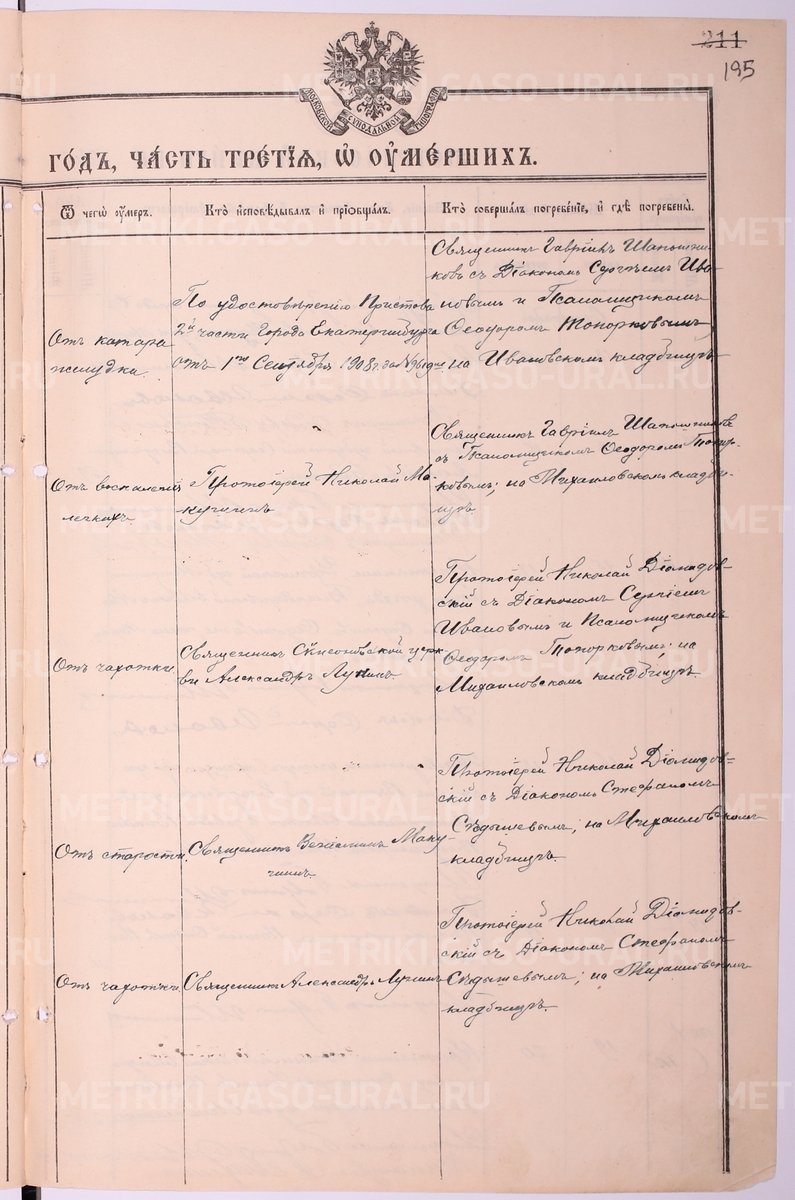 211
195
МОСКОВСКОЙ СѴНОДАЛЬНОЙ ТИПОГРАФІИ
ГОДЪ, ЧАСТЬ ТРЕТІЯ, Ѡ ОУМЕРШИХЪ.
Ѿ чегѡ оумеръ.
Кто исповѣдывалъ и пріобщалъ.
Кто совершалъ погребеніе, и гдѣ погребены.
Отъ катара
желудка
По удостовѣренію Пристова
2й части Города Екатеринбурга
отъ 1го Сентября 1908 г. за №
Священникъ Гавріилъ Шапошни-
ковъ съ Діакономъ Сергѣемъ Ива-
новымъ и Псаломщикомъ
Ѳеодоромъ Топорковымъ
на Ивановскомъ кладбищѣ
Отъ воспаленія
легкихъ
Протоіерей Николай Ма-
кушинъ
Священникъ Гавріилъ Шапошниковъ
съ Псаломщикомъ Ѳеодоромъ Топор-
ковымъ; на Михаиловскомъ кладби-
щѣ
Отъ чахотки
Священникъ церк-
ви Александръ Лукинъ
Протоіерей Николай Діомидов-
скій съ Діакономъ Сергіемъ
Ивановымъ и Псаломщикомъ
Ѳеодоромъ Топорковымъ; на
Михаиловскомъ кладбищѣ
Отъ старости
Священникъ Веніаминъ Маку-
шинъ
Протоіерей Николай Діомидов-
скій съ Діакономъ Стефаномъ
Сѣдышевымъ; на Михаиловскомъ
кладбищѣ
Отъ чахотки
Священникъ Александръ Лукинъ
Протоіерей Николай Діомидов-
скій съ Діакономъ Стефаномъ
Сѣдышевымъ; на Михаиловскомъ
кладбищѣ.
METRIKI.GASO-URAL.RU